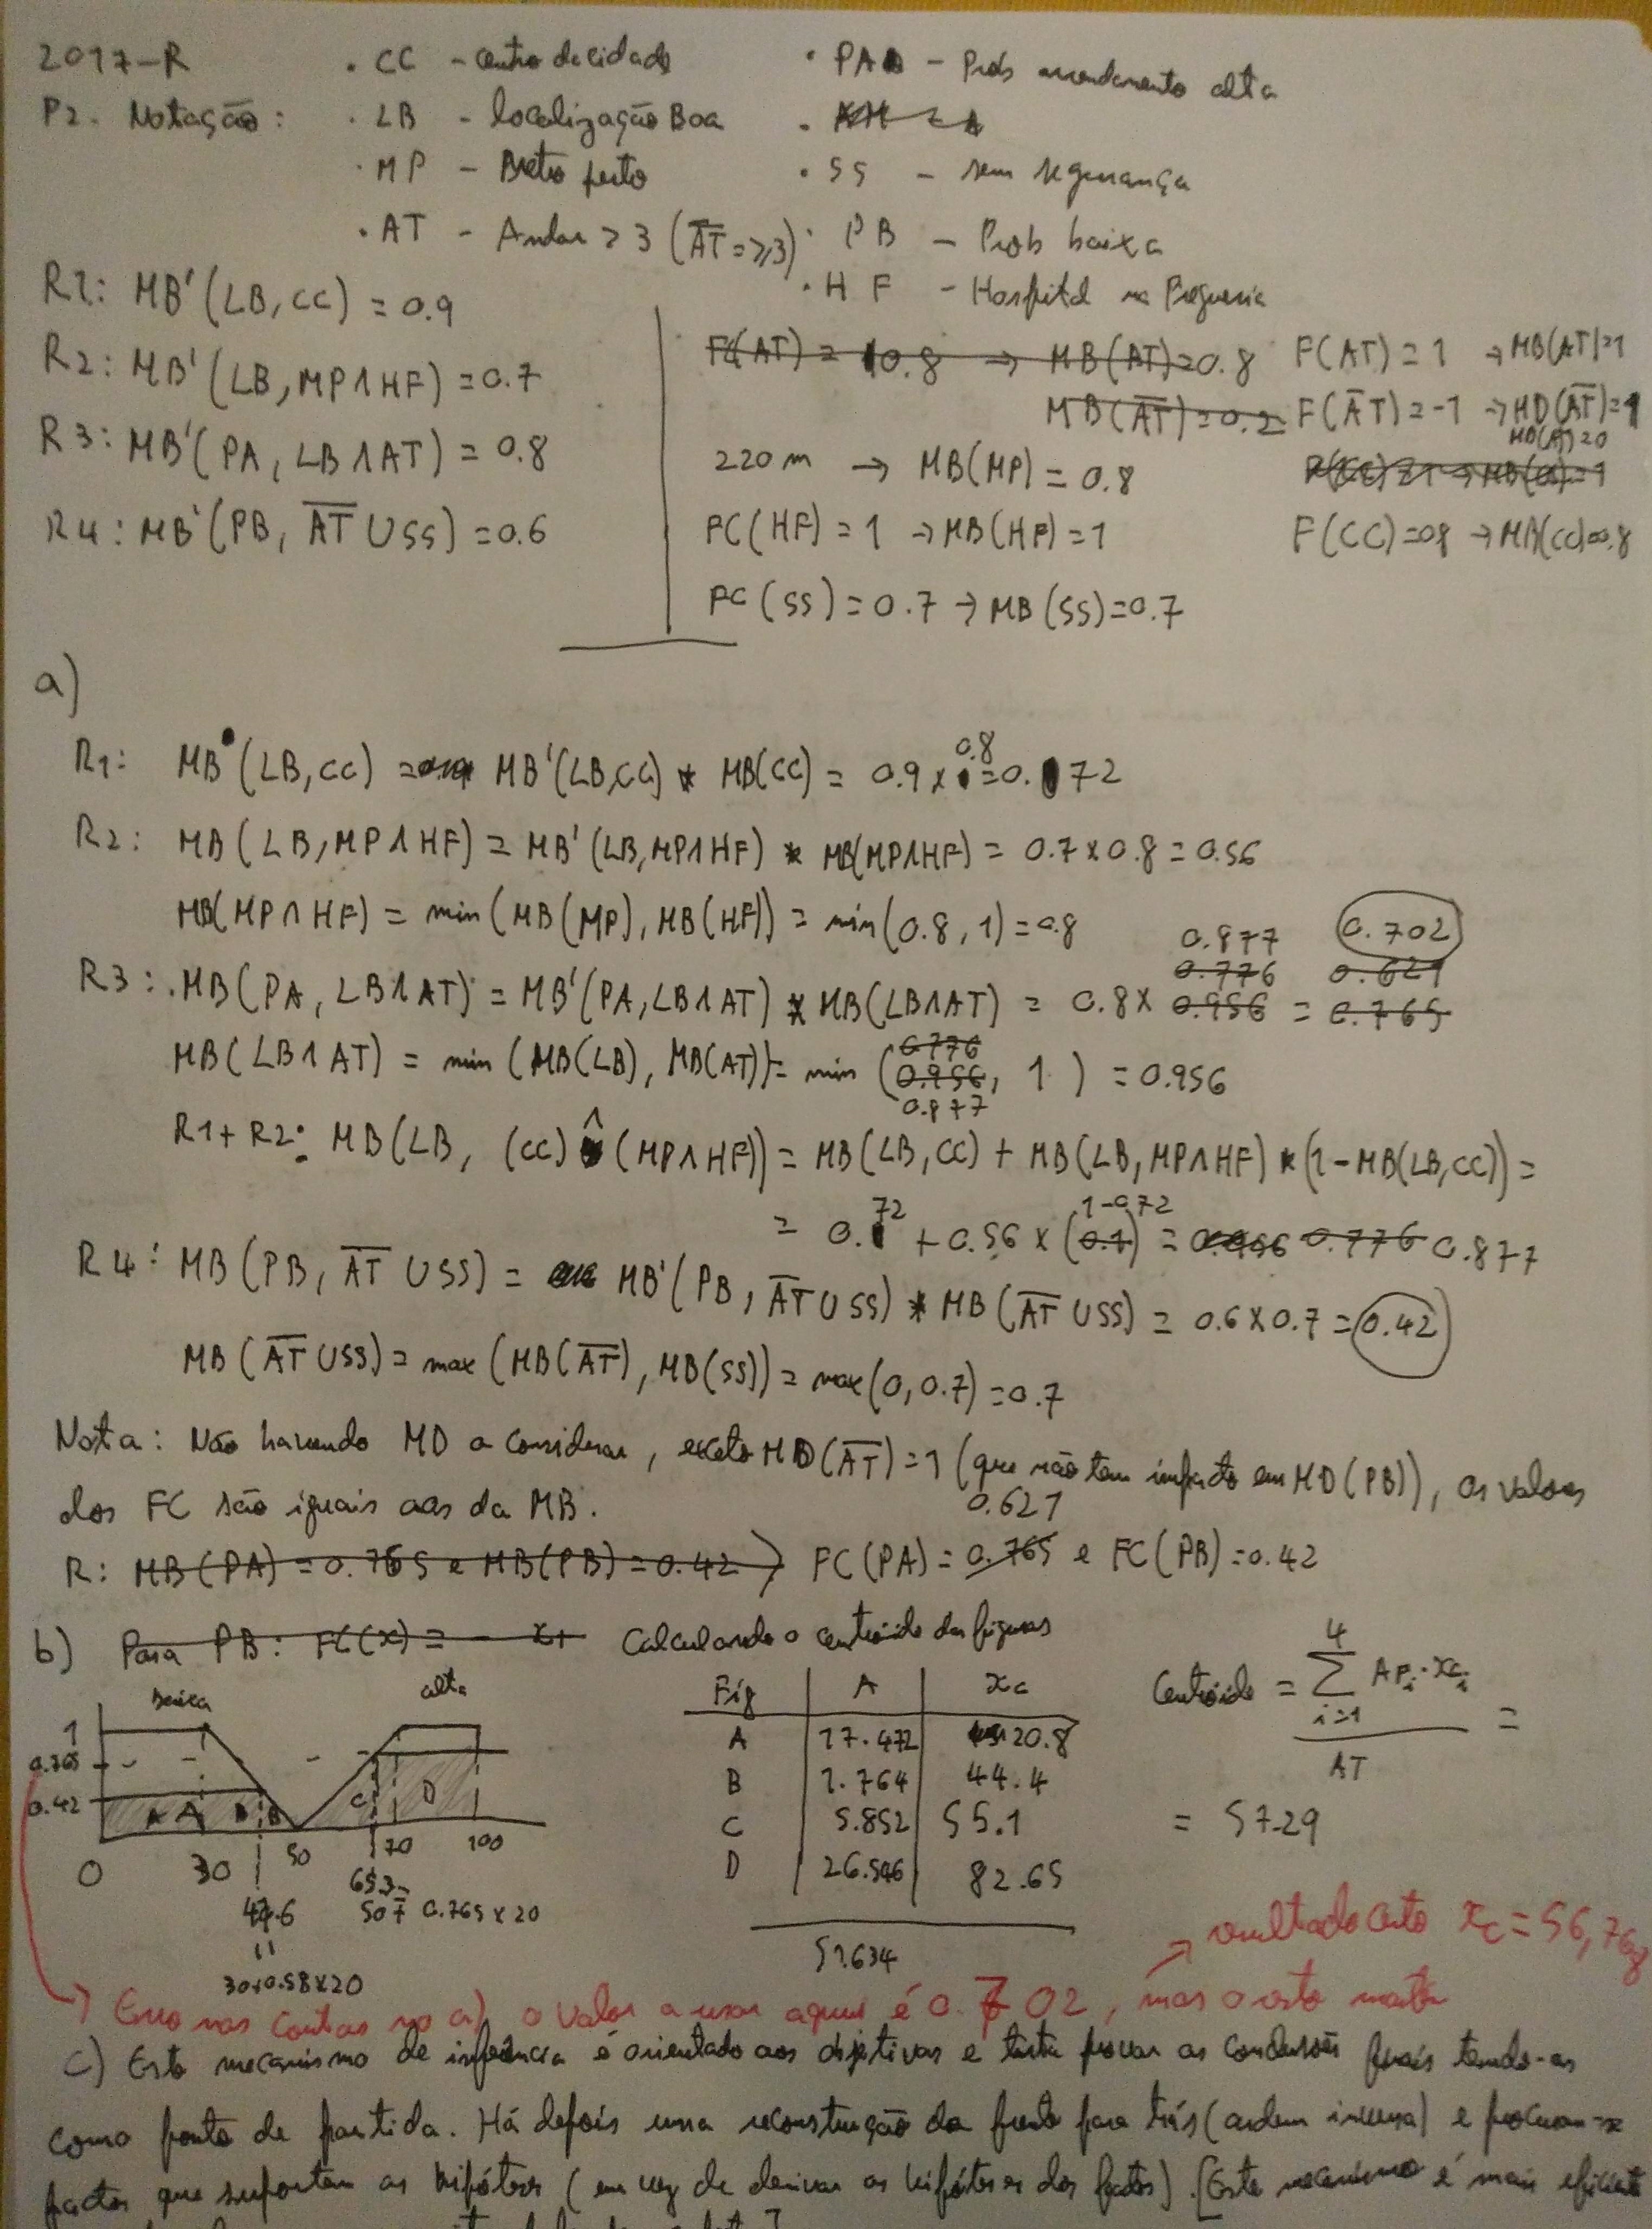 2017-R
P2. Notação:
· CC - Centro de cidade
· LB - localização Boa
· MP - Metro perto
· AT - Andar > 3 (A̅T̅ = ≥3)
· PA - Prob arrendamento alta
· SS - sem segurança
· PB - Prob baixa
· HF - Hospital na Freguesia
R1: MB'(LB, CC) = 0.9
R2: MB'(LB, MP∧HF) = 0.7
R3: MB'(PA, LB∧AT) = 0.8
R4: MB'(PB, A̅T̅ ∪ SS) = 0.6
F(AT) = 0.8 → MB(AT) = 0.8
MB(A̅T̅) = 0.2
F(AT) = 1 → MB(AT) = 1
F(A̅T) = -1 → MD(A̅T̅) = 1
MB(A̅T̅) = 0
220m → MB(MP) = 0.8
FC(HF) = 1 → MB(HF) = 1
F(CC) = 0.8 → MB(CC) = 0.8
FC(SS) = 0.7 → MB(SS) = 0.7
a)
R1: MB(LB, CC) = MB'(LB, CC) * MB(CC) = 0.9 × 0.8 = 0.72
R2: MB(LB, MP∧HF) = MB'(LB, MP∧HF) * MB(MP∧HF) = 0.7 × 0.8 = 0.56
MB(MP∧HF) = min(MB(MP), MB(HF)) = min(0.8, 1) = 0.8
0.877 0.702
0.776 0.621
R3: MB(PA, LB∧AT) = MB'(PA, LB∧AT) * MB(LB∧AT) = 0.8 × 0.956 = 0.765
0.776
MB(LB∧AT) = min(MB(LB), MB(AT)) = min(0.956, 1) = 0.956
0.877
R1+R2: MB(LB, (CC)∧(MP∧HF)) = MB(LB, CC) + MB(LB, MP∧HF) * (1-MB(LB, CC)) =
72 1-0.72
= 0. + 0.56 × (0.1) = 0.956 0.776 0.877
R4: MB(PB, A̅T̅ ∪ SS) = MB'(PB, A̅T̅ ∪ SS) * MB(A̅T̅ ∪ SS) = 0.6 × 0.7 = 0.42
MB(A̅T̅ ∪ SS) = max(MB(A̅T̅), MB(SS)) = max(0, 0.7) = 0.7
Nota: Não havendo MD a considerar, exceto MD(A̅T̅) = 1 (que não tem impacto em MD(PB)), os valores
dos FC são iguais aos da MB.
0.621
R: MB(PA) = 0.765 e MB(PB) = 0.42 FC(PA) = 0.765 e FC(PB) = 0.42
b) Para PB: FC(x) = - x+ Calculando o centróide das figuras
baixa alta
1
0.765
0.42
A B C D
0 30 50 70 100
47.6
"
30+0.58×20
65.3=
50+ 0.765×20
Fig A xc
A 17.472 20.8
B 1.764 44.4
C 5.852 55.1
D 26.546 82.65
51.634
Centróide = Σ AFi·xci =
4
i=1
AT
= 57.29
→ resultado certo xc = 56,768
→ Erro nas contas no a) o valor a usar aqui é 0.702, mas o resto mantém
c) Este mecanismo de inferência é orientado aos objetivos e tenta provar as conclusões finais tendo-as
como ponto de partida. Há depois uma reconstrução da frente para trás (ordem inversa) e procuram-se
factos que suportam as hipóteses (em vez de derivar as hipóteses dos factos). [Este mecanismo é mais eficiente